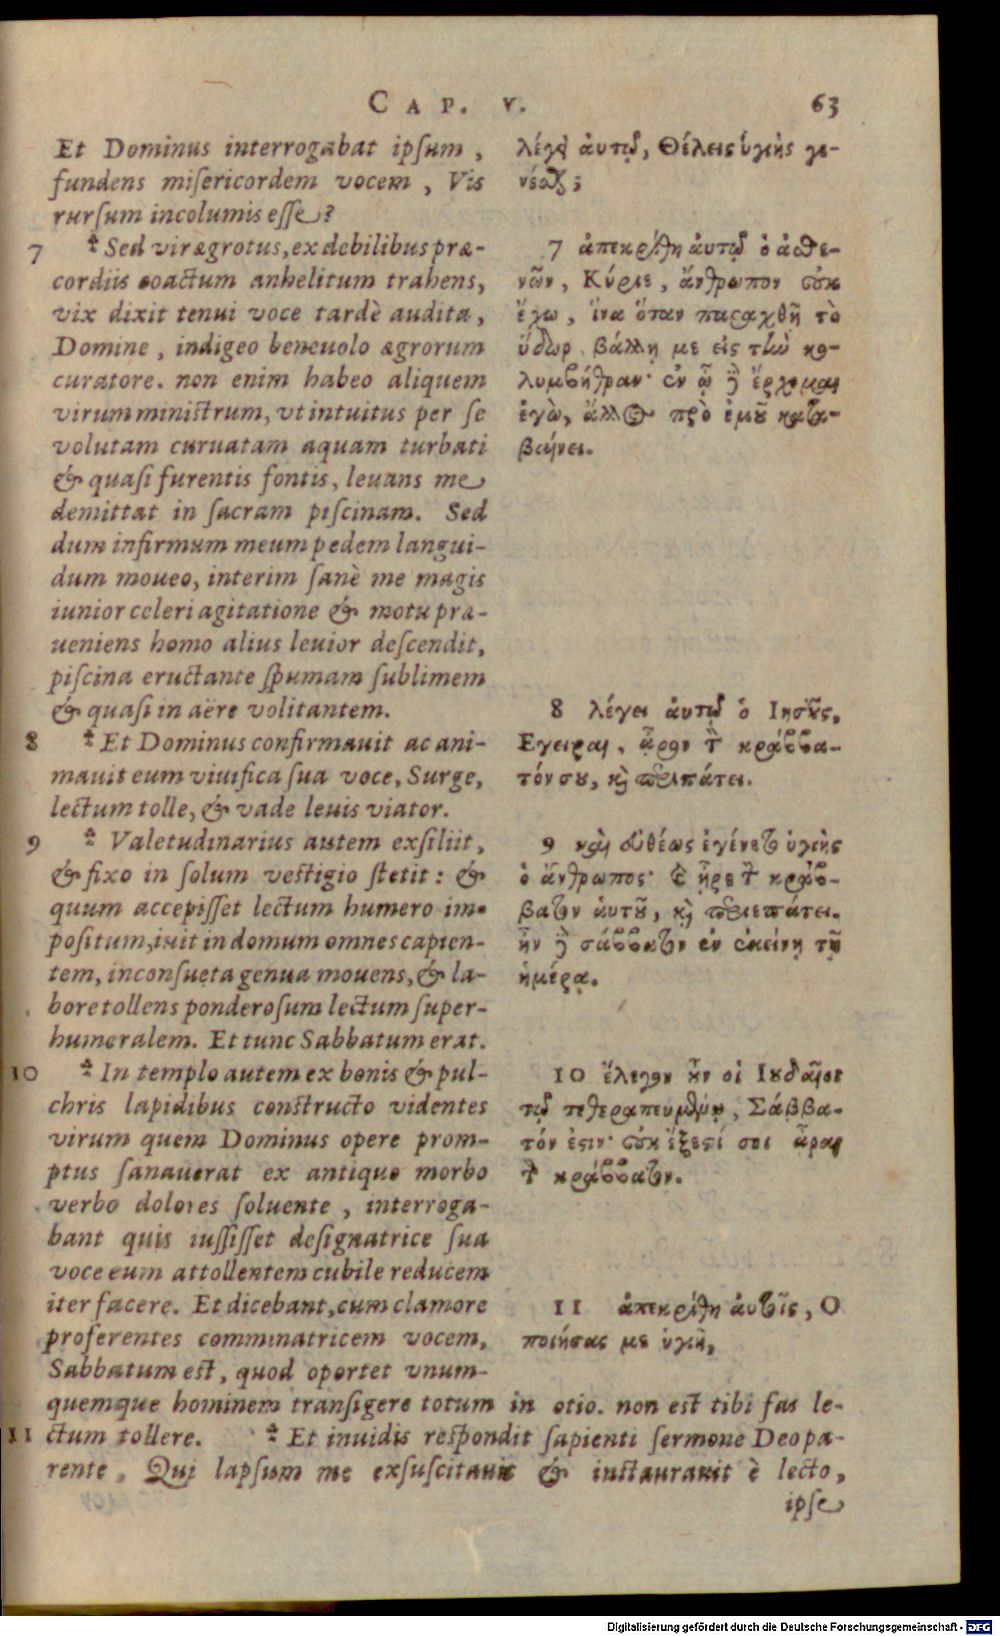 CAP. V. 63
Et Dominus interrogabat ipſum,
fundens miſericordem vocem, Vis
rurſum incolumis eſſe?
7 * Sed vir ægrotus, ex debilibus præ-
cordiis coactum anhelitum trahens,
vix dixit tenui voce tardè audita,
Domine, indigeo beneuolo ægrorum
curatore. non enim habeo aliquem
virum miniſtrum, vt intuitus per ſe
volutam curuatam aquam turbati
& quaſi furentis fontis, leuans me
demittat in ſacram piſcinam. Sed
dum infirmum meum pedem langui-
dum moueo, interim ſanè me magis
iunior celeri agitatione & motu præ-
ueniens homo alius leuior deſcendit,
piſcina eructante ſpumam ſublimem
& quaſi in aëre volitantem.
8 * Et Dominus confirmauit ac ani-
mauit eum viuifica ſua voce, Surge,
lectum tolle, & vade leuis viator.
9 * Valetudinarius autem exſiliit,
& fixo in ſolum veſtigio ſtetit: &
quum accepiſſet lectum humero im-
poſitum, iuit in domum omnes capien-
tem, inconſueta genua mouens, & la-
bore tollens ponderoſum lectum ſuper-
humeralem. Et tunc Sabbatum erat.
10 * In templo autem ex bonis & pul-
chris lapidibus conſtructo videntes
virum quem Dominus opere prom-
ptus ſanauerat ex antiquo morbo
verbo dolores ſoluente, interroga-
bant quis iuſſiſſet deſignatrice ſua
voce eum attollentem cubile reducem
iter facere. Et dicebant, cum clamore
proferentes comminatricem vocem,
Sabbatum eſt, quod oportet vnum-
quemque hominem tranſigere totum in otio. non eſt tibi fas le-
11 ctum tollere. * Et inuidis reſpondit ſapienti ſermone Deo pa-
rente, Qui lapſum me exſuſcitauit & inſtaurauit è lecto,
ipſe
λέγει ἀυτῷ, Θέλεις ὑγιὴς γε-
νέσθαι;
7 ἀπεκρίθη ἀυτῷ ὁ ἀσθε-
νῶν, Κύριε, ἄνθρωπον οὐκ
ἔχω, ἵνα ὅταν παραχθῇ τὸ
ὕδωρ, βάλλῃ με εἰς τὴν κο-
λυμβήθραν· ἐν ᾧ δὲ ἔρχομαι
ἐγὼ, ἄλλος πρὸ ἐμοῦ κατα-
βαίνει.
8 λέγει ἀυτῷ ὁ Ιησοῦς,
Εγειραι, ἆρον τὸν κράββα-
τόν σου, καὶ περιπάτει.
9 καὶ εὐθέως ἐγένετο ὑγιὴς
ὁ ἄνθρωπος· καὶ ἦρε τὸν κράβ-
βατον ἀυτοῦ, καὶ περιεπάτει.
ἦν δὲ σάββατον ἐν ἐκείνῃ τῇ
ἡμέρᾳ.
10 ἔλεγον οὖν οἱ Ιουδαῖοι
τῷ τεθεραπευμένῳ, Σάββα-
τόν ἐστιν· οὐκ ἔξεστί σοι ἆραι
τὸν κράββατον.
11 ἀπεκρίθη ἀυτοῖς, Ο
ποιήσας με ὑγιῆ,
Digitalisierung gefördert durch die Deutsche Forschungsgemeinschaft - DFG